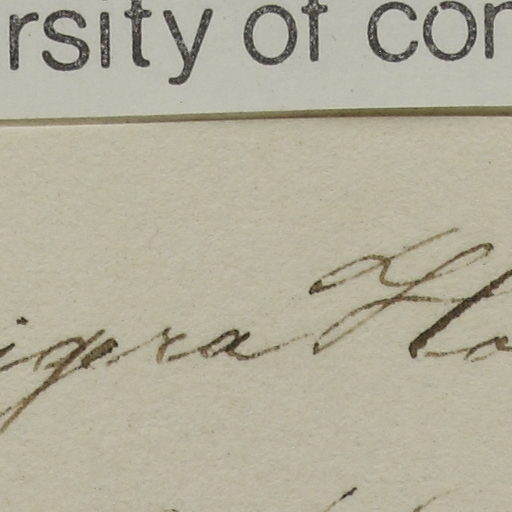 rsity of con
igra Ho